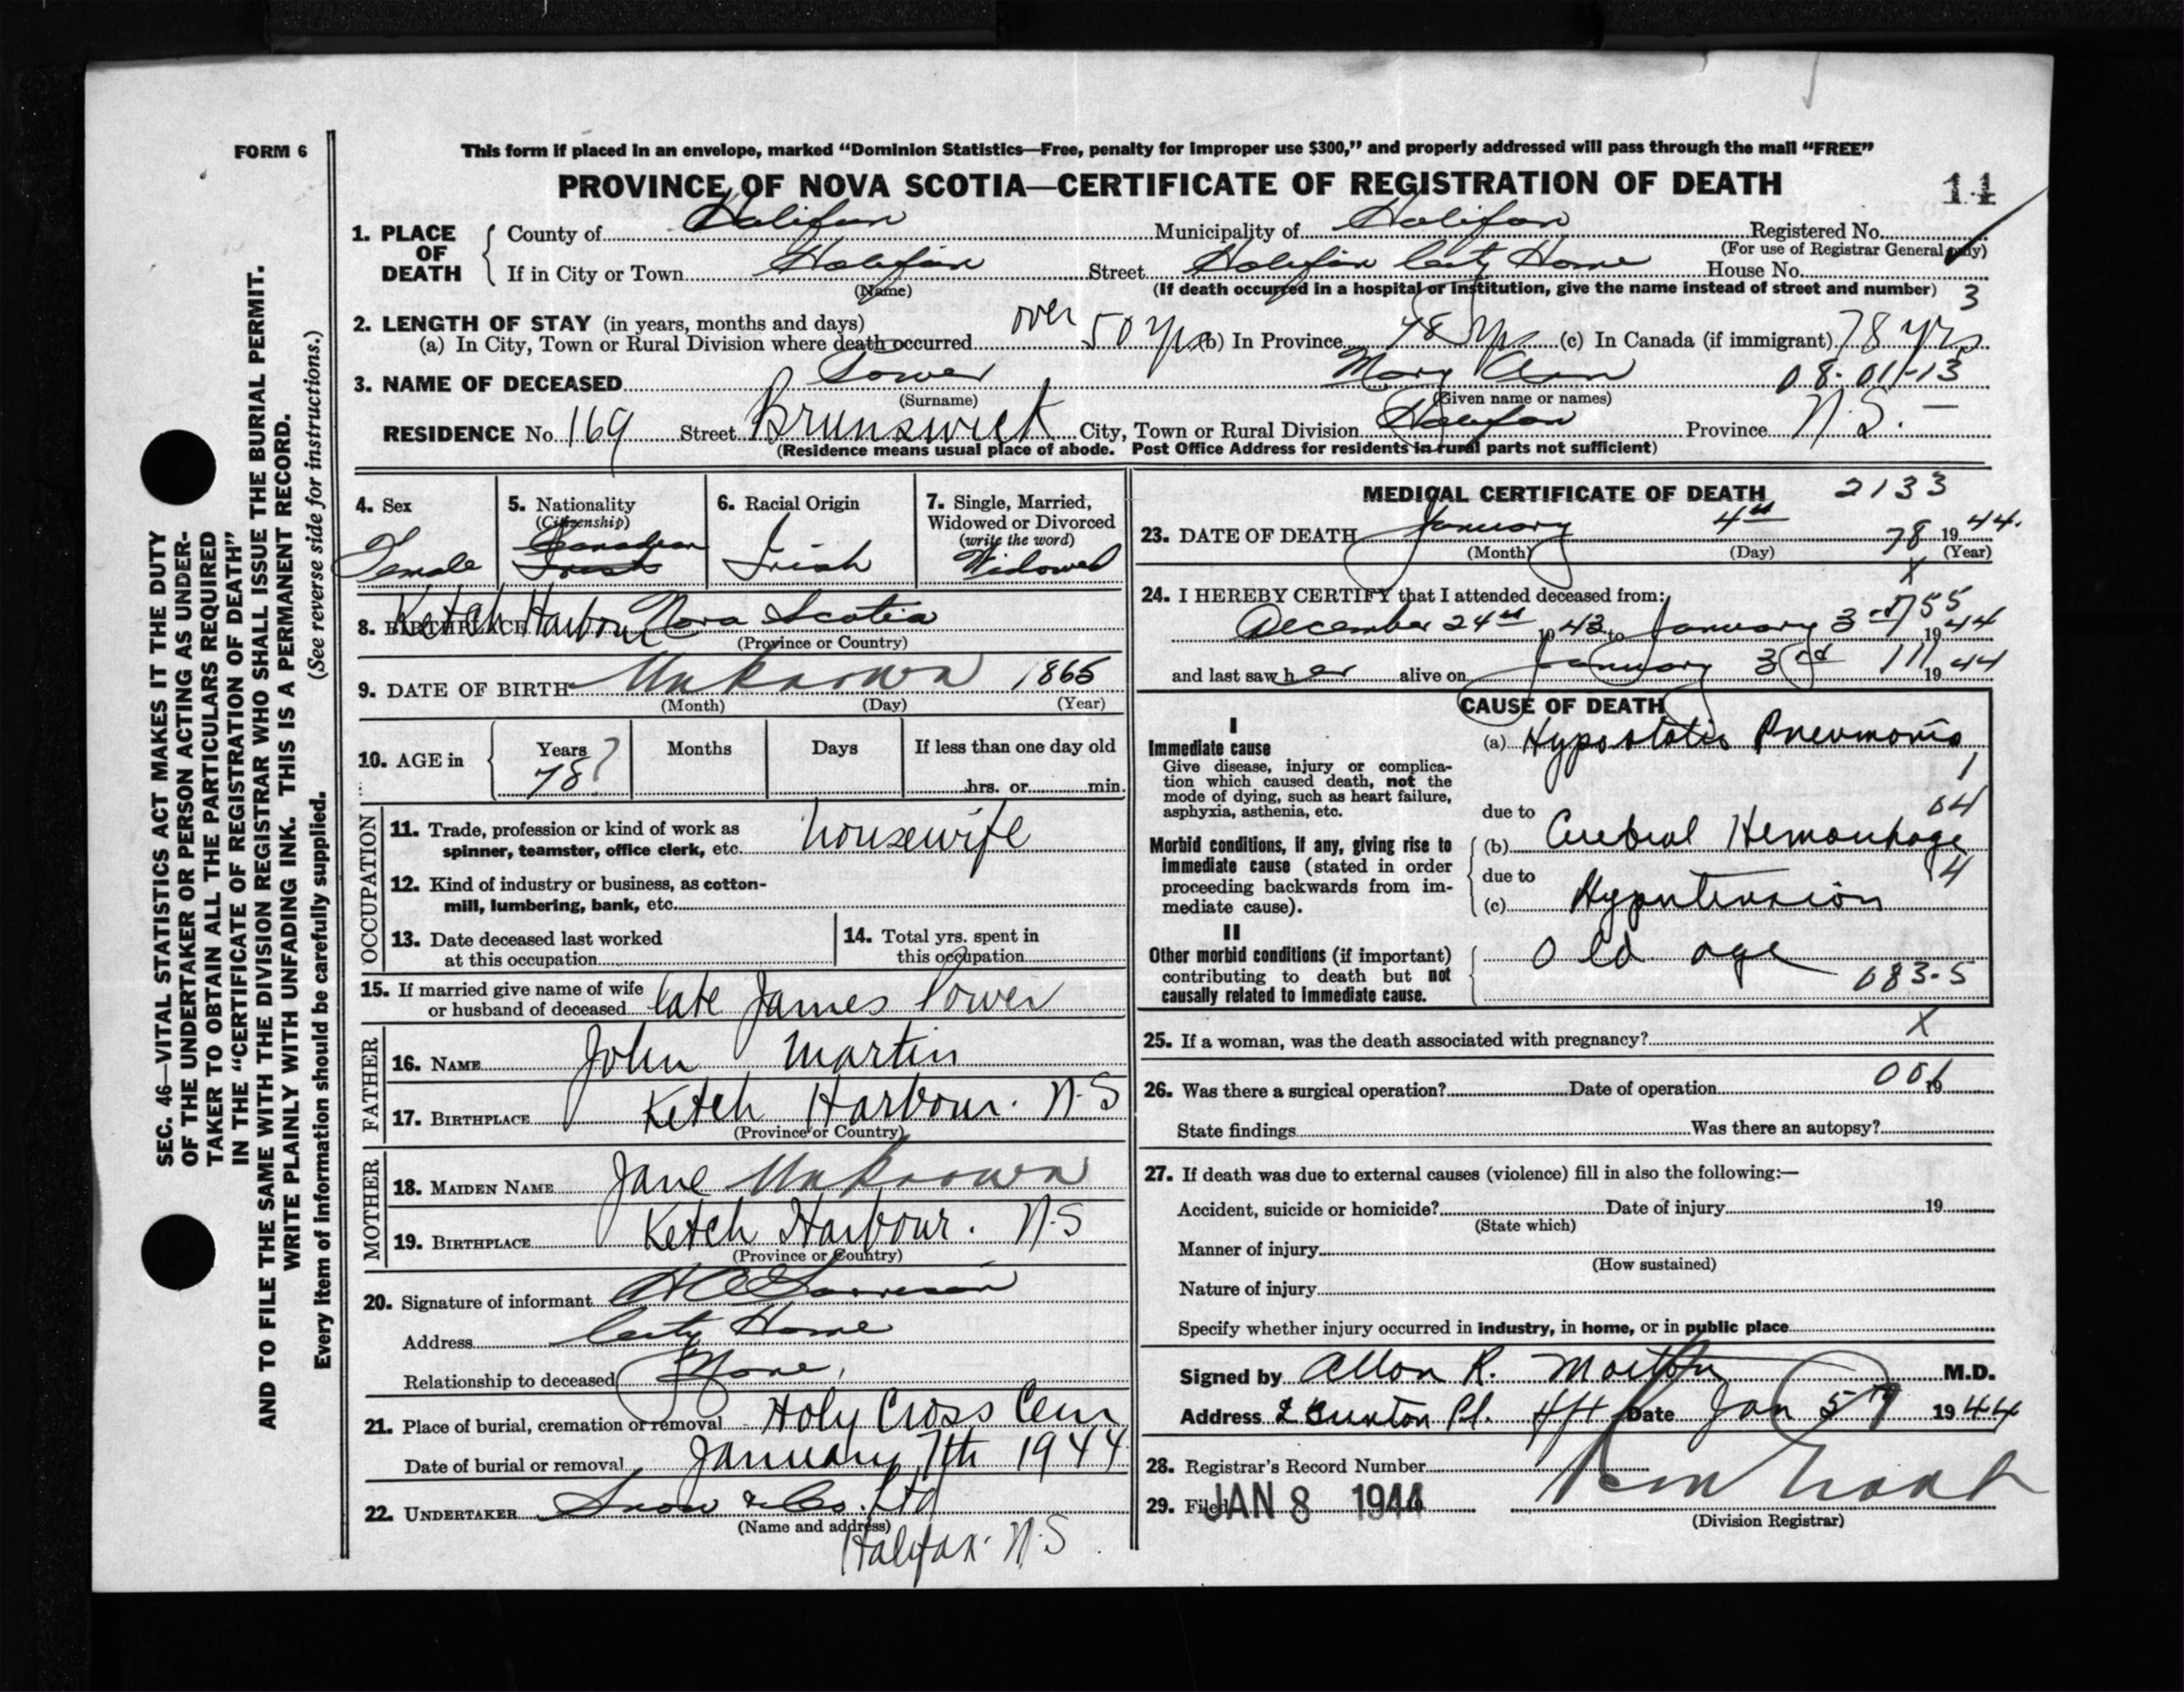 FORM 6
This form if placed in an envelope, marked “Dominion Statistics—Free, penalty for improper use $300,” and properly addressed will pass through the mail “FREE”
PROVINCE OF NOVA SCOTIA—CERTIFICATE OF REGISTRATION OF DEATH
14
1. PLACE OF DEATH
County of Halifax Municipality of Halifax Registered No.
(For use of Registrar General only)
If in City or Town Halifax Street Halifax City Home House No.
(Name) (If death occurred in a hospital or institution, give the name instead of street and number) 3
2. LENGTH OF STAY (in years, months and days)
(a) In City, Town or Rural Division where death occurred over 50 yrs (b) In Province 78 yrs (c) In Canada (if immigrant) 78 yrs
3. NAME OF DECEASED Power Mary Ann 08-01-13
(Surname) (Given name or names)
RESIDENCE No. 169 Street Brunswick City, Town or Rural Division Halifax Province N.S.
(Residence means usual place of abode. Post Office Address for residents in rural parts not sufficient)
4. Sex
Female
5. Nationality
(Citizenship)
Canadian
Irish
6. Racial Origin
Irish
7. Single, Married,
Widowed or Divorced
(write the word)
Widowed
8. BIRTHPLACE Ketch Harbour Nova Scotia
(Province or Country)
9. DATE OF BIRTH Unknown 1865
(Month) (Day) (Year)
10. AGE in
Years Months Days If less than one day old
78? hrs. or min.
OCCUPATION
11. Trade, profession or kind of work as
spinner, teamster, office clerk, etc. housewife
12. Kind of industry or business, as cotton-
mill, lumbering, bank, etc.
13. Date deceased last worked
at this occupation
14. Total yrs. spent in
this occupation
15. If married give name of wife
or husband of deceased late James Power
FATHER
16. NAME John Martin
17. BIRTHPLACE Ketch Harbour. N-S
(Province or Country)
MOTHER
18. MAIDEN NAME Jane Unknown
19. BIRTHPLACE Ketch Harbour. N-S
(Province or Country)
20. Signature of informant
Address City Home
Relationship to deceased None
21. Place of burial, cremation or removal Holy Cross Cem
Date of burial or removal January 7th 1944
22. UNDERTAKER Snow & Co. Ltd
(Name and address)
Halifax. N.S
MEDICAL CERTIFICATE OF DEATH 2133
23. DATE OF DEATH January 4th 78 1944.
(Month) (Day) (Year)
X
24. I HEREBY CERTIFY that I attended deceased from:
755
December 24th 1943 to January 3rd 1944
and last saw her alive on January 3rd 111 1944
CAUSE OF DEATH
I
Immediate cause
Give disease, injury or complica-
tion which caused death, not the
mode of dying, such as heart failure,
asphyxia, asthenia, etc.
(a) Hypostatic Pneumonia
1
due to
04
Morbid conditions, if any, giving rise to
immediate cause (stated in order
proceeding backwards from im-
mediate cause).
(b) Cerebral Hemorrhage
due to
4
(c) Hypertension
II
Other morbid conditions (if important)
contributing to death but not
causally related to immediate cause.
Old age
083-5
X
25. If a woman, was the death associated with pregnancy?
26. Was there a surgical operation? Date of operation 19
State findings Was there an autopsy?
27. If death was due to external causes (violence) fill in also the following:—
Accident, suicide or homicide? Date of injury 19
(State which)
Manner of injury
(How sustained)
Nature of injury
Specify whether injury occurred in industry, in home, or in public place
Signed by Allan R. Morton M.D.
Address Pl. Hfx Date Jan 5th 1944
28. Registrar's Record Number
29. Filed JAN 8 1944
(Division Registrar)
SEC. 46—VITAL STATISTICS ACT MAKES IT THE DUTY
OF THE UNDERTAKER OR PERSON ACTING AS UNDER-
TAKER TO OBTAIN ALL THE PARTICULARS REQUIRED
IN THE “CERTIFICATE OF REGISTRATION OF DEATH”
AND TO FILE THE SAME WITH THE DIVISION REGISTRAR WHO SHALL ISSUE THE BURIAL PERMIT.
WRITE PLAINLY WITH UNFADING INK. THIS IS A PERMANENT RECORD.
Every item of information should be carefully supplied. (See reverse side for instructions.)